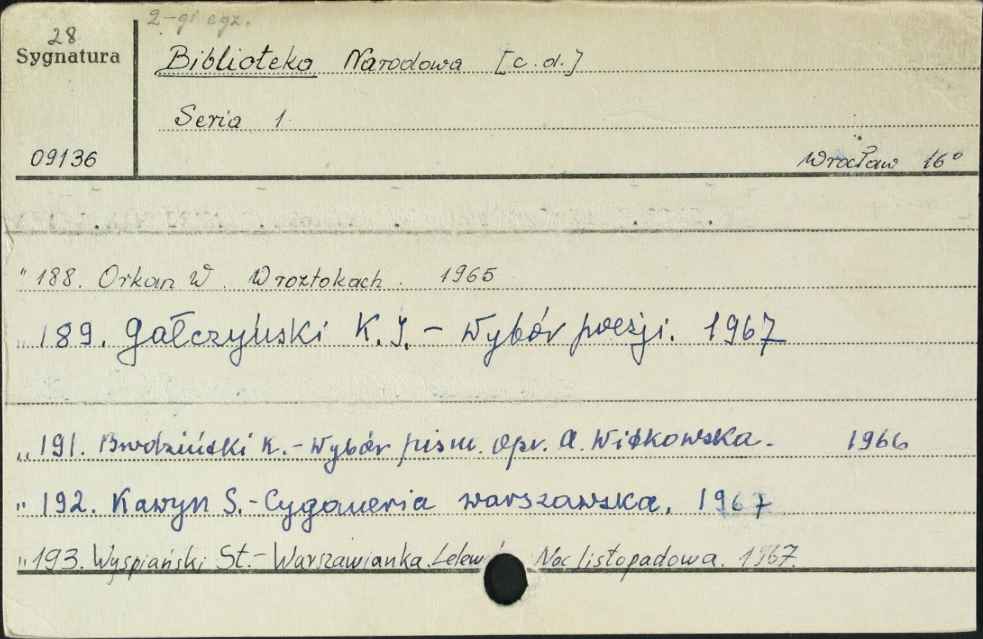 28
2-gi egz.
Sygnatura
Biblioteka Narodowa [c.d.]
Seria 1
09136
Wrocław 16°
" 188. Orkan W. W roztokach. 1965
" 189. Gałczyński K. I. – Wybór poezji. 1967
" 191. Brodziński K. – Wybór pism. opr. A. Witkowska. 1966
" 192. Kawyn S. – Cyganeria warszawska. 1967
" 193. Wyspiański St. – Warszawianka. Lelewel. Noc listopadowa. 1967.